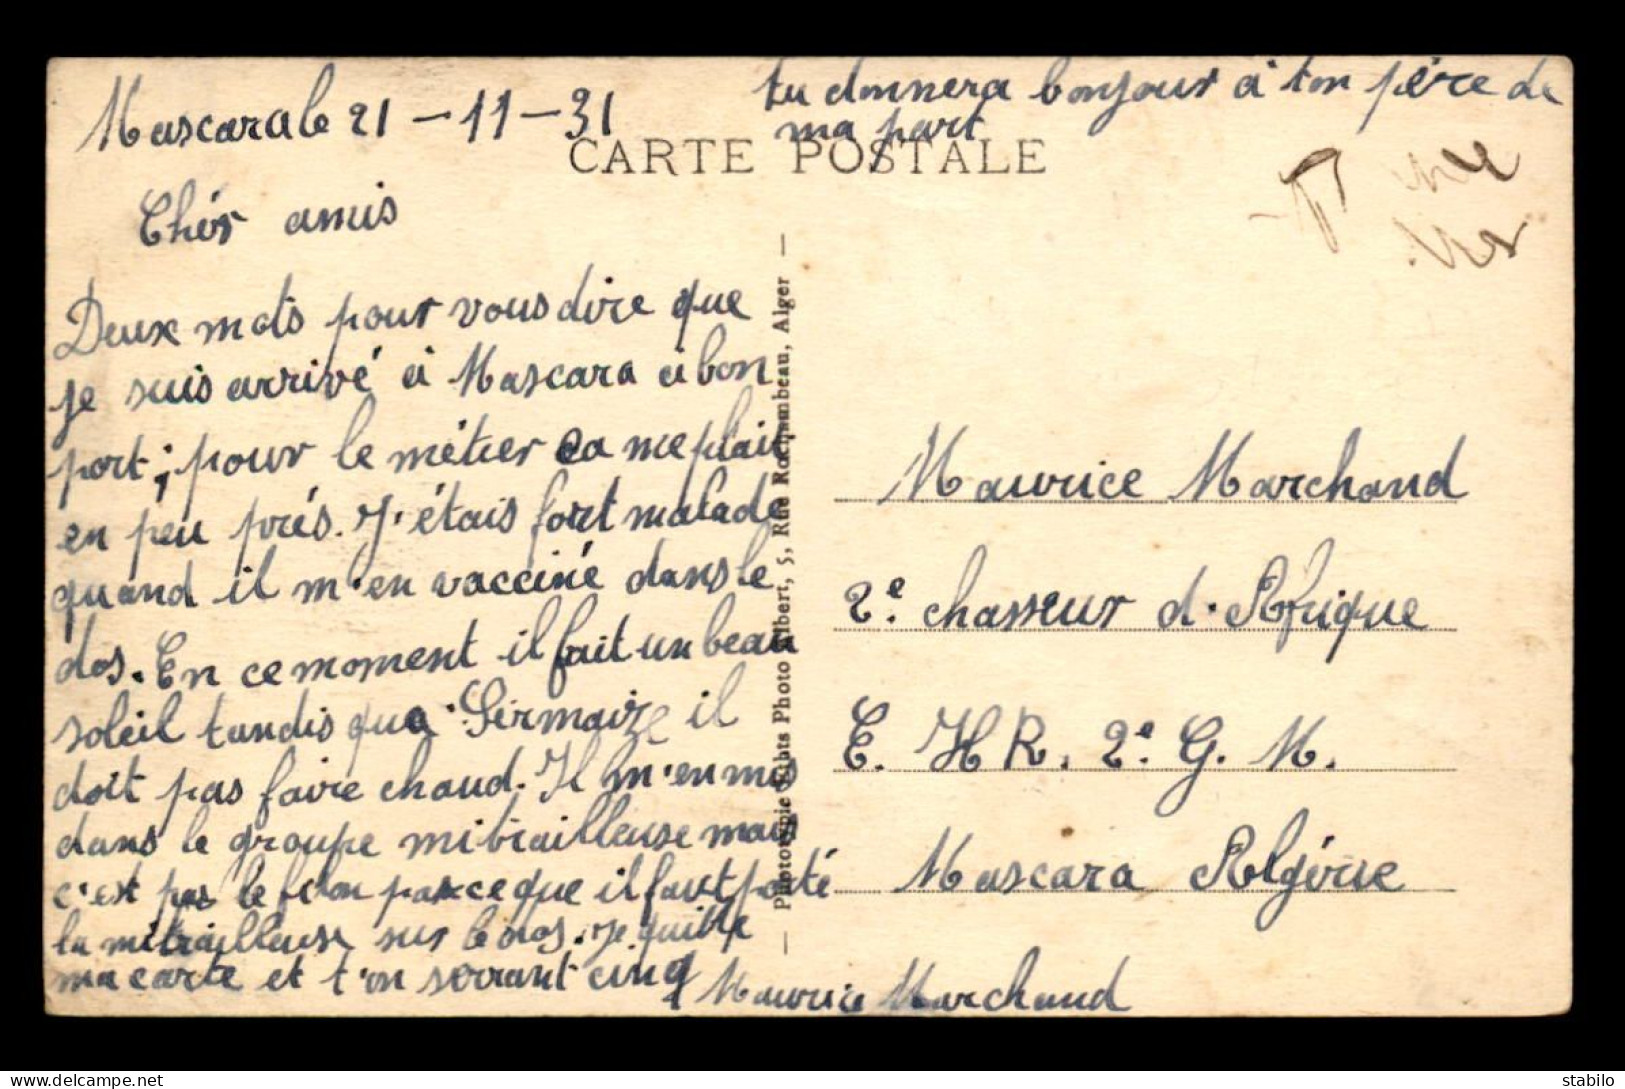 tu donnera bonjour à ton pére de
ma part
Mascara le 21-11-31
CARTE POSTALE
Chérs amis
Deux mots pour vous dire que
je suis arrivé à Mascara à bon
port; pour le métier ca me plait
en peu prés. J'étais fort malade
quand il m'en vacciné dans le
dos. En ce moment il fait un beau
soleil tandis que Germaize il
doit pas faire chaud. Il m'en mis
dans le groupe mitrailleuse mais
c'est pas le filon parce que il faut porté
la mitrailleuse sur le dos. Je quitte
ma carte et t'en serrant cinq
Maurice Marchand
Phototypie d'Arts Photo Albert, 5, Rue Rochambeau, Alger
Maurice Marchand
2e. chasseur d'Afrique
E. H R. 2e. G. M.
Mascara Algérie